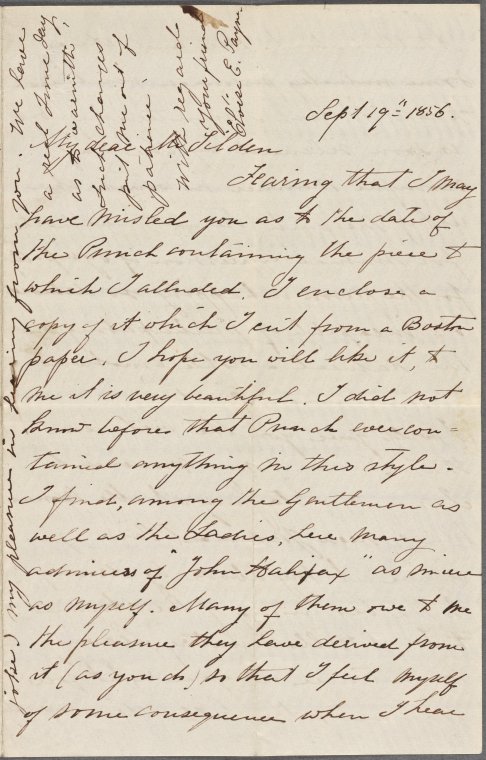 Sept 19" 1856.
My dear Mr Tilden
Fearing that I may
have misled you as to the date of
the Punch containing the piece to
which I alluded, I enclose a
copy of it which I cut from a Boston
paper. I hope you will like it, to
me it is very beautiful. I did not
know before that Punch ever con=
tained anything in this style.
I find, among the Gentlemen as
well as the Ladies, here many
admirers of "John Halifax" as sincere
as myself. Many of them owe to me
the pleasure they have derived from
it (as you do) so that I feel myself
of some consequence when I hear
joke) my pleasure in hearing from you. We have
a real June day
as to warmth,
such changes
put me out of
patience.
With regard
Your friend
E. Payne